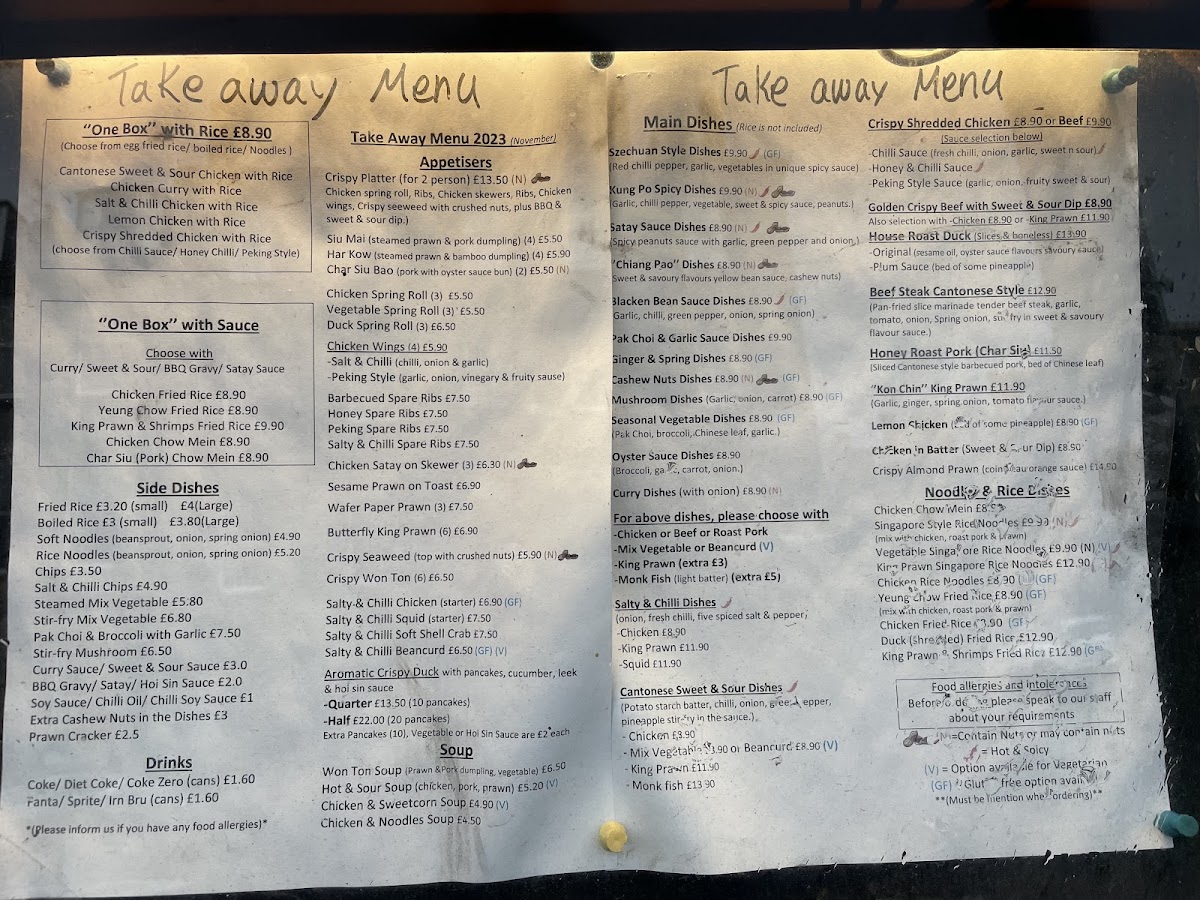 Take away Menu
"One Box" with Rice £8.90
(Choose from egg fried rice/ boiled rice/ Noodles )
Cantonese Sweet & Sour Chicken with Rice
Chicken Curry with Rice
Salt & Chilli Chicken with Rice
Lemon Chicken with Rice
Crispy Shredded Chicken with Rice
(choose from Chilli Sauce/ Honey Chilli/ Peking Style)
"One Box" with Sauce
Choose with
Curry/ Sweet & Sour/ BBQ Gravy/ Satay Sauce
Chicken Fried Rice £8.90
Yeung Chow Fried Rice £8.90
King Prawn & Shrimps Fried Rice £9.90
Chicken Chow Mein £8.90
Char Siu (Pork) Chow Mein £8.90
Side Dishes
Fried Rice £3.20 (small) £4(Large)
Boiled Rice £3 (small) £3.80(Large)
Soft Noodles (beansprout, onion, spring onion) £4.90
Rice Noodles (beansprout, onion, spring onion) £5.20
Chips £3.50
Salt & Chilli Chips £4.90
Steamed Mix Vegetable £5.80
Stir-fry Mix Vegetable £6.80
Pak Choi & Broccoli with Garlic £7.50
Stir-fry Mushroom £6.50
Curry Sauce/ Sweet & Sour Sauce £3.0
BBQ Gravy/ Satay/ Hoi Sin Sauce £2.0
Soy Sauce/ Chilli Oil/ Chilli Soy Sauce £1
Extra Cashew Nuts in the Dishes £3
Prawn Cracker £2.5
Drinks
Coke/ Diet Coke/ Coke Zero (cans) £1.60
Fanta/ Sprite/ Irn Bru (cans) £1.60
*(Please inform us if you have any food allergies)*
Take Away Menu 2023 (November)
Appetisers
Crispy Platter (for 2 person) £13.50 (N)
Chicken spring roll, Ribs, Chicken skewers, Ribs, Chicken
wings, Crispy seeweed with crushed nuts, plus BBQ &
sweet & sour dip.)
Siu Mai (steamed prawn & pork dumpling) (4) £5.50
Har Kow (steamed prawn & bamboo dumpling) (4) £5.90
Char Siu Bao (pork with oyster sauce bun) (2) £5.50 (N)
Chicken Spring Roll (3) £5.50
Vegetable Spring Roll (3) £5.50
Duck Spring Roll (3) £6.50
Chicken Wings (4) £5.90
-Salt & Chilli (chilli, onion & garlic)
-Peking Style (garlic, onion, vinegary & fruity sause)
Barbecued Spare Ribs £7.50
Honey Spare Ribs £7.50
Peking Spare Ribs £7.50
Salty & Chilli Spare Ribs £7.50
Chicken Satay on Skewer (3) £6.30 (N)
Sesame Prawn on Toast £6.90
Wafer Paper Prawn (3) £7.50
Butterfly King Prawn (6) £6.90
Crispy Seaweed (top with crushed nuts) £5.90 (N)
Crispy Won Ton (6) £6.50
Salty & Chilli Chicken (starter) £6.90 (GF)
Salty & Chilli Squid (starter) £7.50
Salty & Chilli Soft Shell Crab £7.50
Salty & Chilli Beancurd £6.50 (GF) (V)
Aromatic Crispy Duck with pancakes, cucumber, leek
& hoi sin sauce
-Quarter £13.50 (10 pancakes)
-Half £22.00 (20 pancakes)
Extra Pancakes (10), Vegetable or Hoi Sin Sauce are £2 each
Soup
Won Ton Soup (Prawn & Pork dumpling, vegetable) £6.50
Hot & Sour Soup (chicken, pork, prawn) £5.20 (V)
Chicken & Sweetcorn Soup £4.90 (V)
Chicken & Noodles Soup £4.50
Take away Menu
Main Dishes (Rice is not included)
Szechuan Style Dishes £9.90 (GF)
(Red chilli pepper, garlic, vegetables in unique spicy sauce)
Kung Po Spicy Dishes £9.90 (N)
(Garlic, chilli pepper, vegetable, sweet & spicy sauce, peanuts.)
Satay Sauce Dishes £8.90 (N)
(Spicy peanuts sauce with garlic, green pepper and onion.)
"Chiang Pao" Dishes £8.90 (N)
(Sweet & savoury flavours yellow bean sauce, cashew nuts)
Blacken Bean Sauce Dishes £8.90 (GF)
(Garlic, chilli, green pepper, onion, spring onion)
Pak Choi & Garlic Sauce Dishes £9.90
Ginger & Spring Dishes £8.90 (GF)
Cashew Nuts Dishes £8.90 (N) (GF)
Mushroom Dishes (Garlic, onion, carrot) £8.90 (GF)
Seasonal Vegetable Dishes £8.90 (GF)
(Pak Choi, broccoli, Chinese leaf, garlic.)
Oyster Sauce Dishes £8.90
(Broccoli, carrot, onion.)
Curry Dishes (with onion) £8.90 (N)
For above dishes, please choose with
-Chicken or Beef or Roast Pork
-Mix Vegetable or Beancurd (V)
-King Prawn (extra £3)
-Monk Fish (light batter) (extra £5)
Salty & Chilli Dishes
(onion, fresh chilli, five spiced salt & pepper)
-Chicken £8.90
-King Prawn £11.90
-Squid £11.90
Cantonese Sweet & Sour Dishes
(Potato starch batter, chilli, onion, green pepper,
pineapple stir-fry in the sauce.)
- Chicken £8.90
- Mix Vegetable £8.90 or Beancurd £8.90 (V)
- King Prawn £11.90
- Monk fish £13.90
Crispy Shredded Chicken £8.90 or Beef £9.90
(Sauce selection below)
-Chilli Sauce (fresh chilli, onion, garlic, sweet n sour)
-Honey & Chilli Sauce
-Peking Style Sauce (garlic, onion, fruity sweet & sour)
Golden Crispy Beef with Sweet & Sour Dip £8.90
Also selection with -Chicken £8.90 or -King Prawn £11.90
House Roast Duck (Slices & boneless) £13.90
-Original (sesame oil, oyster sauce flavours savoury sauce)
-Plum Sauce (bed of some pineapple)
Beef Steak Cantonese Style £12.90
(Pan-fried slice marinade tender beef steak, garlic,
tomato, onion, Spring onion, stir fry in sweet & savoury
flavour sauce.)
Honey Roast Pork (Char Siu) £11.50
(Sliced Cantonese style barbecued pork, bed of Chinese leaf)
"Kon Chin" King Prawn £11.90
(Garlic, ginger, spring onion, tomato flavour sauce.)
Lemon Chicken (bed of some pineapple) £8.90 (GF)
Chicken in Batter (Sweet & Sour Dip) £8.90
Crispy Almond Prawn (cointreau orange sauce) £14.90
Noodles & Rice Dishes
Chicken Chow Mein £8.90
Singapore Style Rice Noodles £9.90 (N)
(mix with chicken, roast pork & prawn)
Vegetable Singapore Rice Noodles £9.90 (N) (V)
King Prawn Singapore Rice Noodles £12.90
Chicken Rice Noodles £8.90 (GF)
Yeung Chow Fried Rice £8.90 (GF)
(mix with chicken, roast pork & prawn)
Chicken Fried Rice £8.90 (GF)
Duck (Shredded) Fried Rice £12.90
King Prawn & Shrimps Fried Rice £12.90 (GF)
Food allergies and intolerances
Before please speak to our staff
about your requirements
(N)=Contain Nuts or may contain nuts
= Hot & Spicy
(V) = Option available for Vegetarian
(GF) = Gluten free option available
**(Must be mention when ordering)**